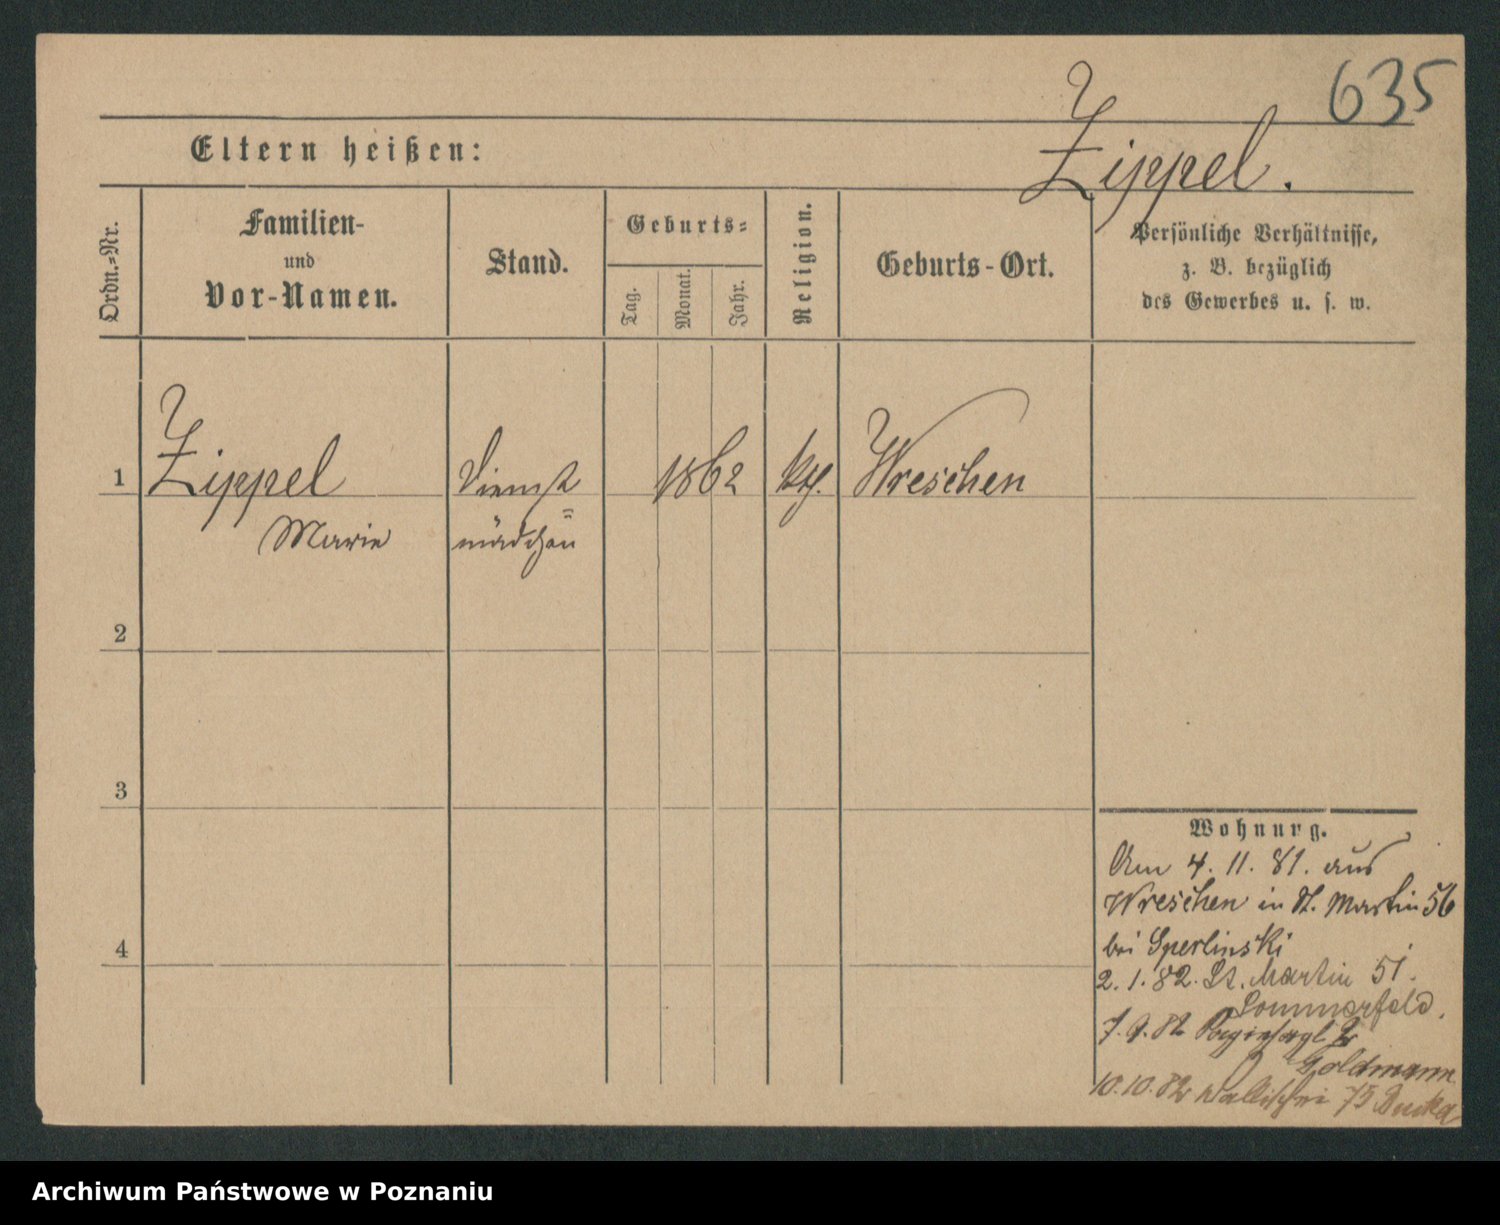 635
Zippel.
Eltern heißen:
Ordn.=Nr.
Familien-
und
Vor-Namen.
Stand.
Geburts=
Tag.
Monat.
Jahr.
Religion.
Geburts-Ort.
Persönliche Verhältnisse,
z. B. bezüglich
des Gewerbes u. s. w.
1 Zippel Dienst 1862 kth. Wreschen
= 
Marie mädchen
2
3
4
Wohnung.
Am 4. 11. 81. aus
Wreschen in St. Martin 56
bei Sperlinski
2. 1. 82. St. Martin 51.
Sommerfeld.
7. 9. 82
Goldmann
10. 10. 82 Wallischei 75 Ducka
Archiwum Państwowe w Poznaniu